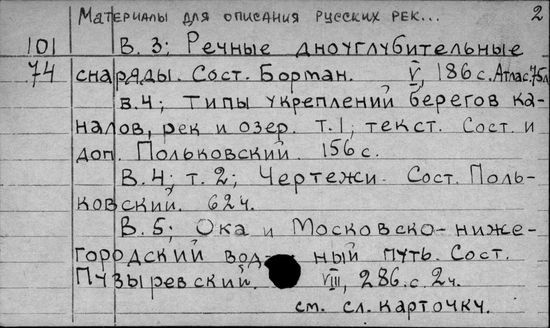 Материалы для описания русских рек... 2
101 В. 3; Речные дноуглубительные
74 снаряды. Сост. Борман. V, 186 с. Атлас. 75л
в. 4; Типы укреплений берегов ка-
налов, рек и озер. т. 1; текст. Сост. и
доп. Польковский. 156 с.
В. 4; т. 2; Чертежи. Сост. Поль-
ковский. 62 ч.
В. 5; Ока и Московско-ниже-
городский вод- ный путь. Сост.
Пузыревский. VIII, 286. с. 2 ч.
см. сл. карточку.